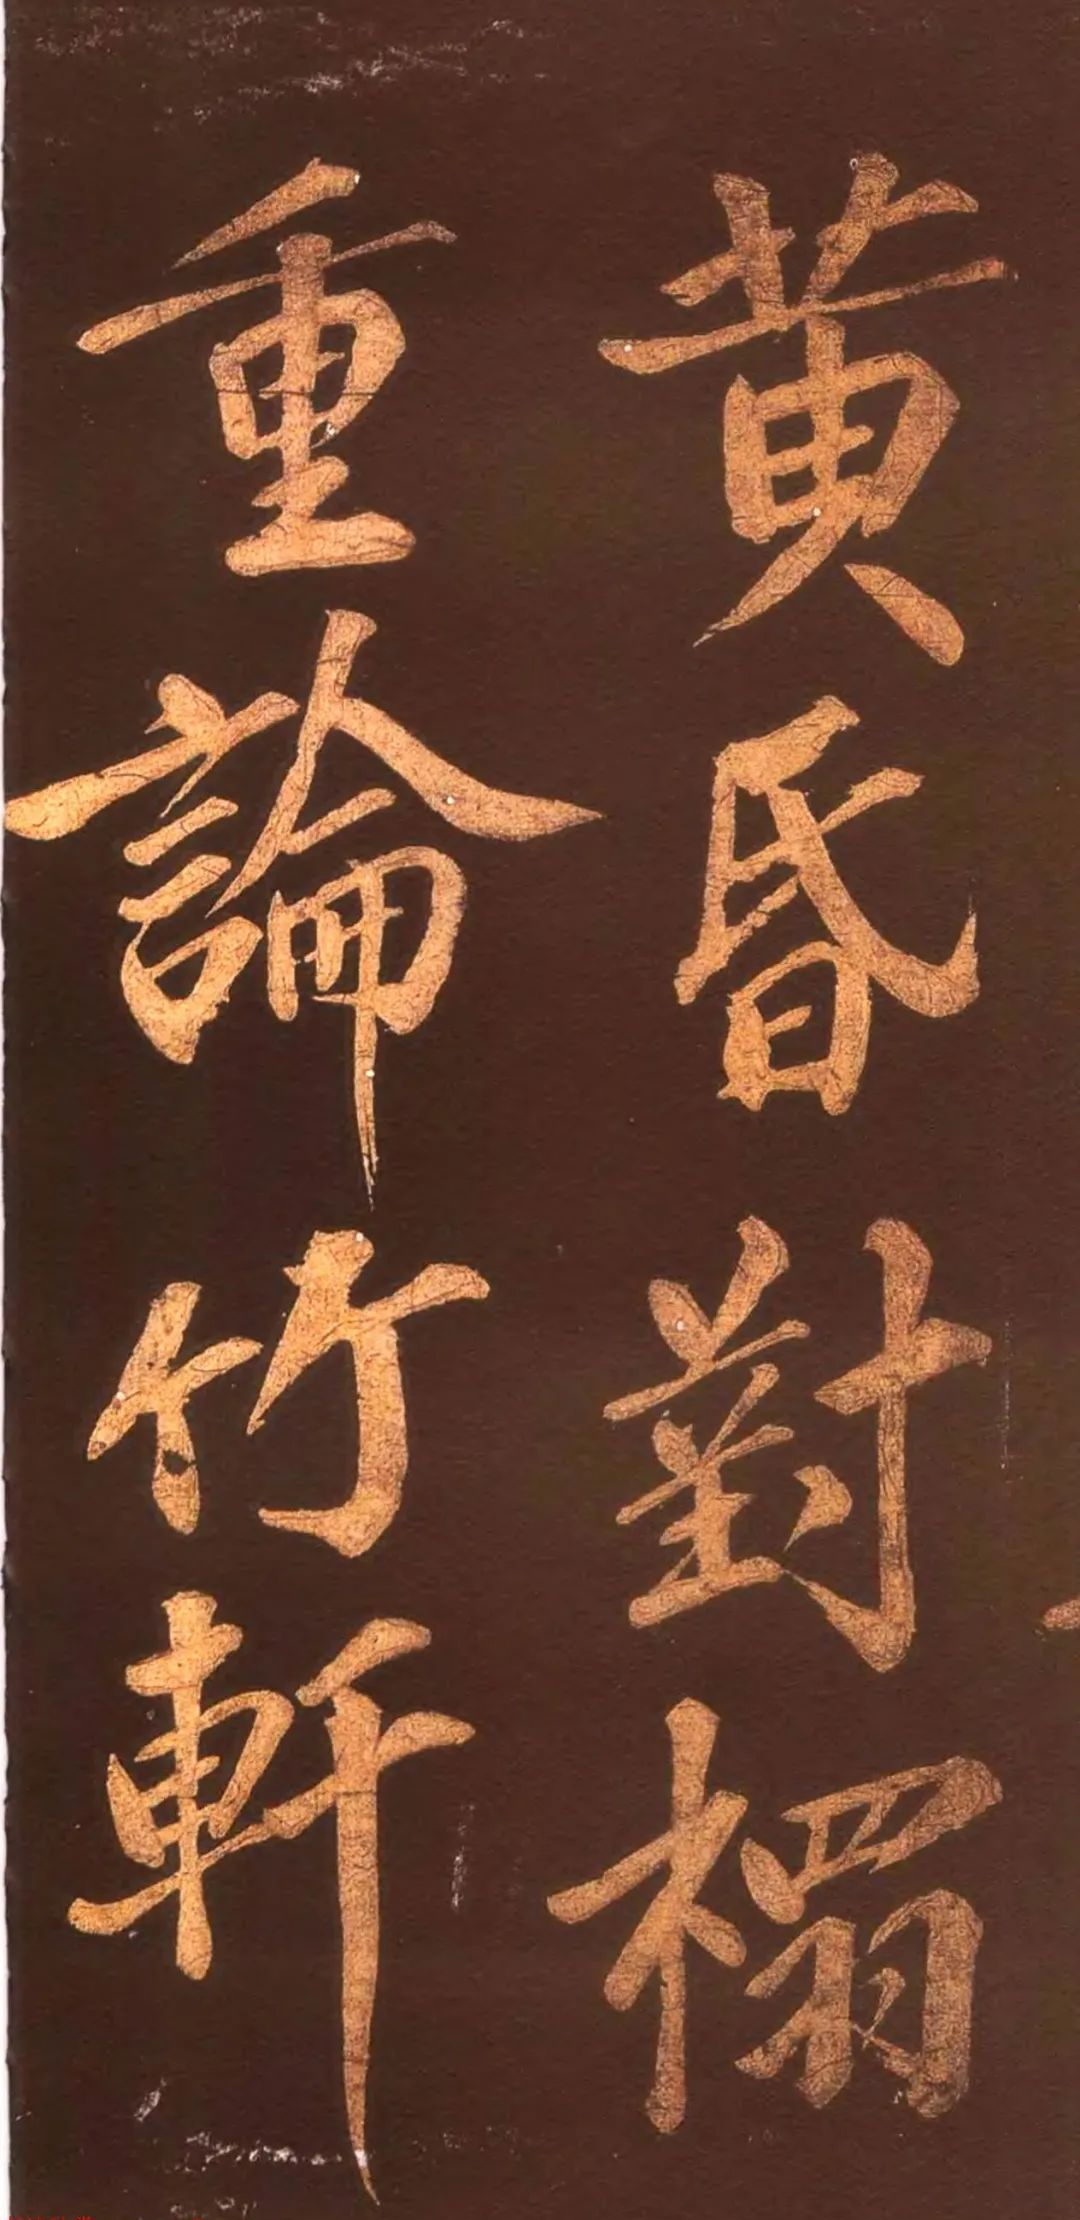 黄昏對榻
重論竹軒